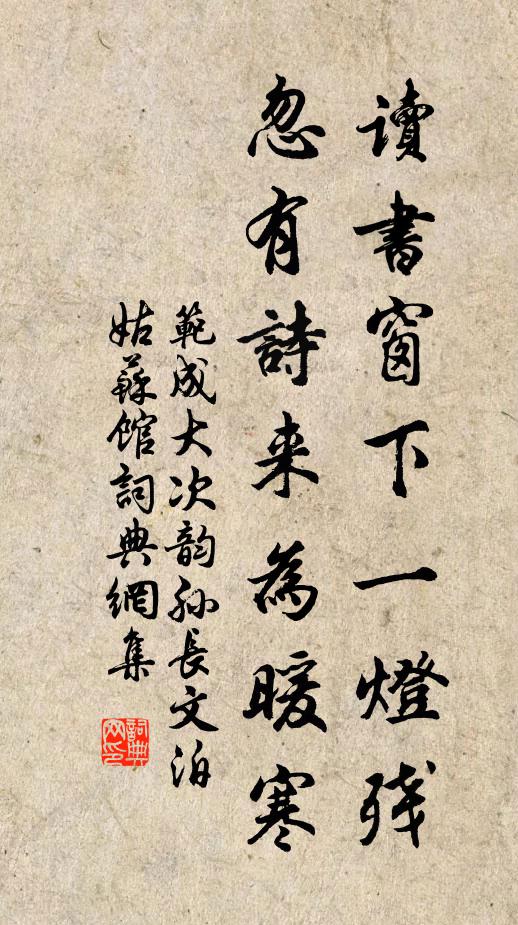 讀書窗下一燈殘
忽有詩来為暖寒
範成大次韵孫長文泊
姑蘇館詞典網集
詞典
网印